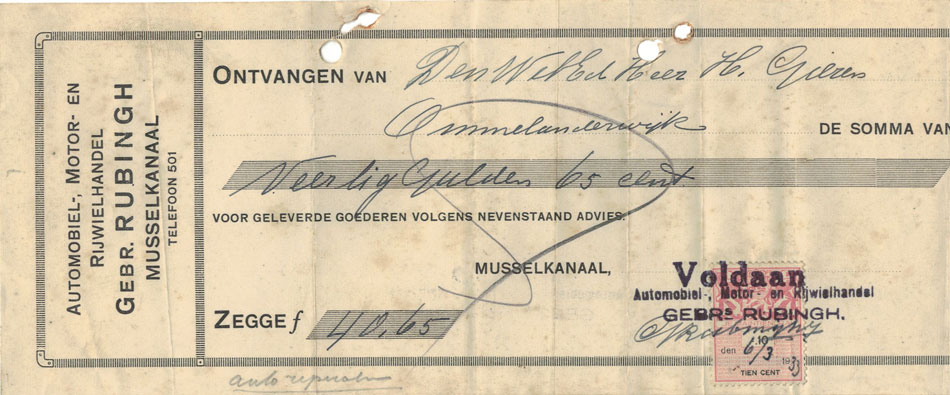 AUTOMOBIEL-, MOTOR- EN
RIJWIELHANDEL
GEBR. RUBINGH
MUSSELKANAAL
TELEFOON 501
ONTVANGEN VAN Den WelEd Heer H. Gieren
Ommelanderwijk DE SOMMA VAN
Veertig Gulden 65 cent
VOOR GELEVERDE GOEDEREN VOLGENS NEVENSTAAND ADVIES.
MUSSELKANAAL,
Voldaan
Automobiel-, Motor- en Rijwielhandel
GEBRS RUBINGH.
ZEGGE f 40,65
10
den 6/3 1933
TIEN CENT
auto reparatie